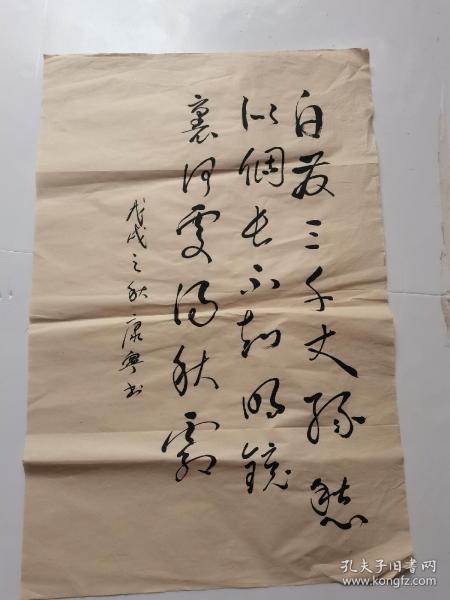 白发三千丈缘愁
似個长不知明镜
裏何处得秋霜
戊戌之秋康興书
孔夫子旧书网
www.kongfz.com